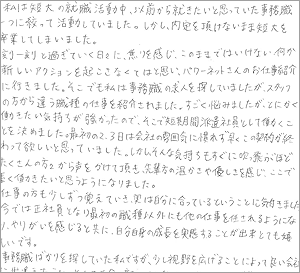 私は短大の就職活動中、以前から就きたいと思っていた事務職
一つに絞って活動していました。しかし、内定を頂けないまま短大を
卒業してしまいました。
刻一刻と過ぎていく日々に、焦りを感じ、このままではいけない、何か
新しいアクションを起こさなくてはと思い、パワーネットさんのお仕事紹介
に行きました。そこでも私は事務職の求人を探していましたが、スタッフ
の方から違う職種の仕事を紹介されました。すごく悩みましたが、とにかく
働きたい気持ちが強かったので、そこで短期間派遣社員として働くこ
とを決めました。最初の2、3日は会社の雰囲気に慣れず早くこの契約が終
わって欲しいと思っていました。しかしそんな気持ちもすぐに
たくさんの方々から声をかけて頂き、先輩方の温かさや優しさを感じ、ここで
長く働きたいと思うようになりました。
仕事の方も少しずつ覚えていき、実は自分に合っているということに気付きました
今では正社員となり最初の職種以外にも他の仕事を任されるようにな
り、やりがいを感じると共に、自分自身の成長を実感することが出来とても嬉
しいです。
事務職ばかりを探していた私ですが、少し視野を広げることによって良い会社